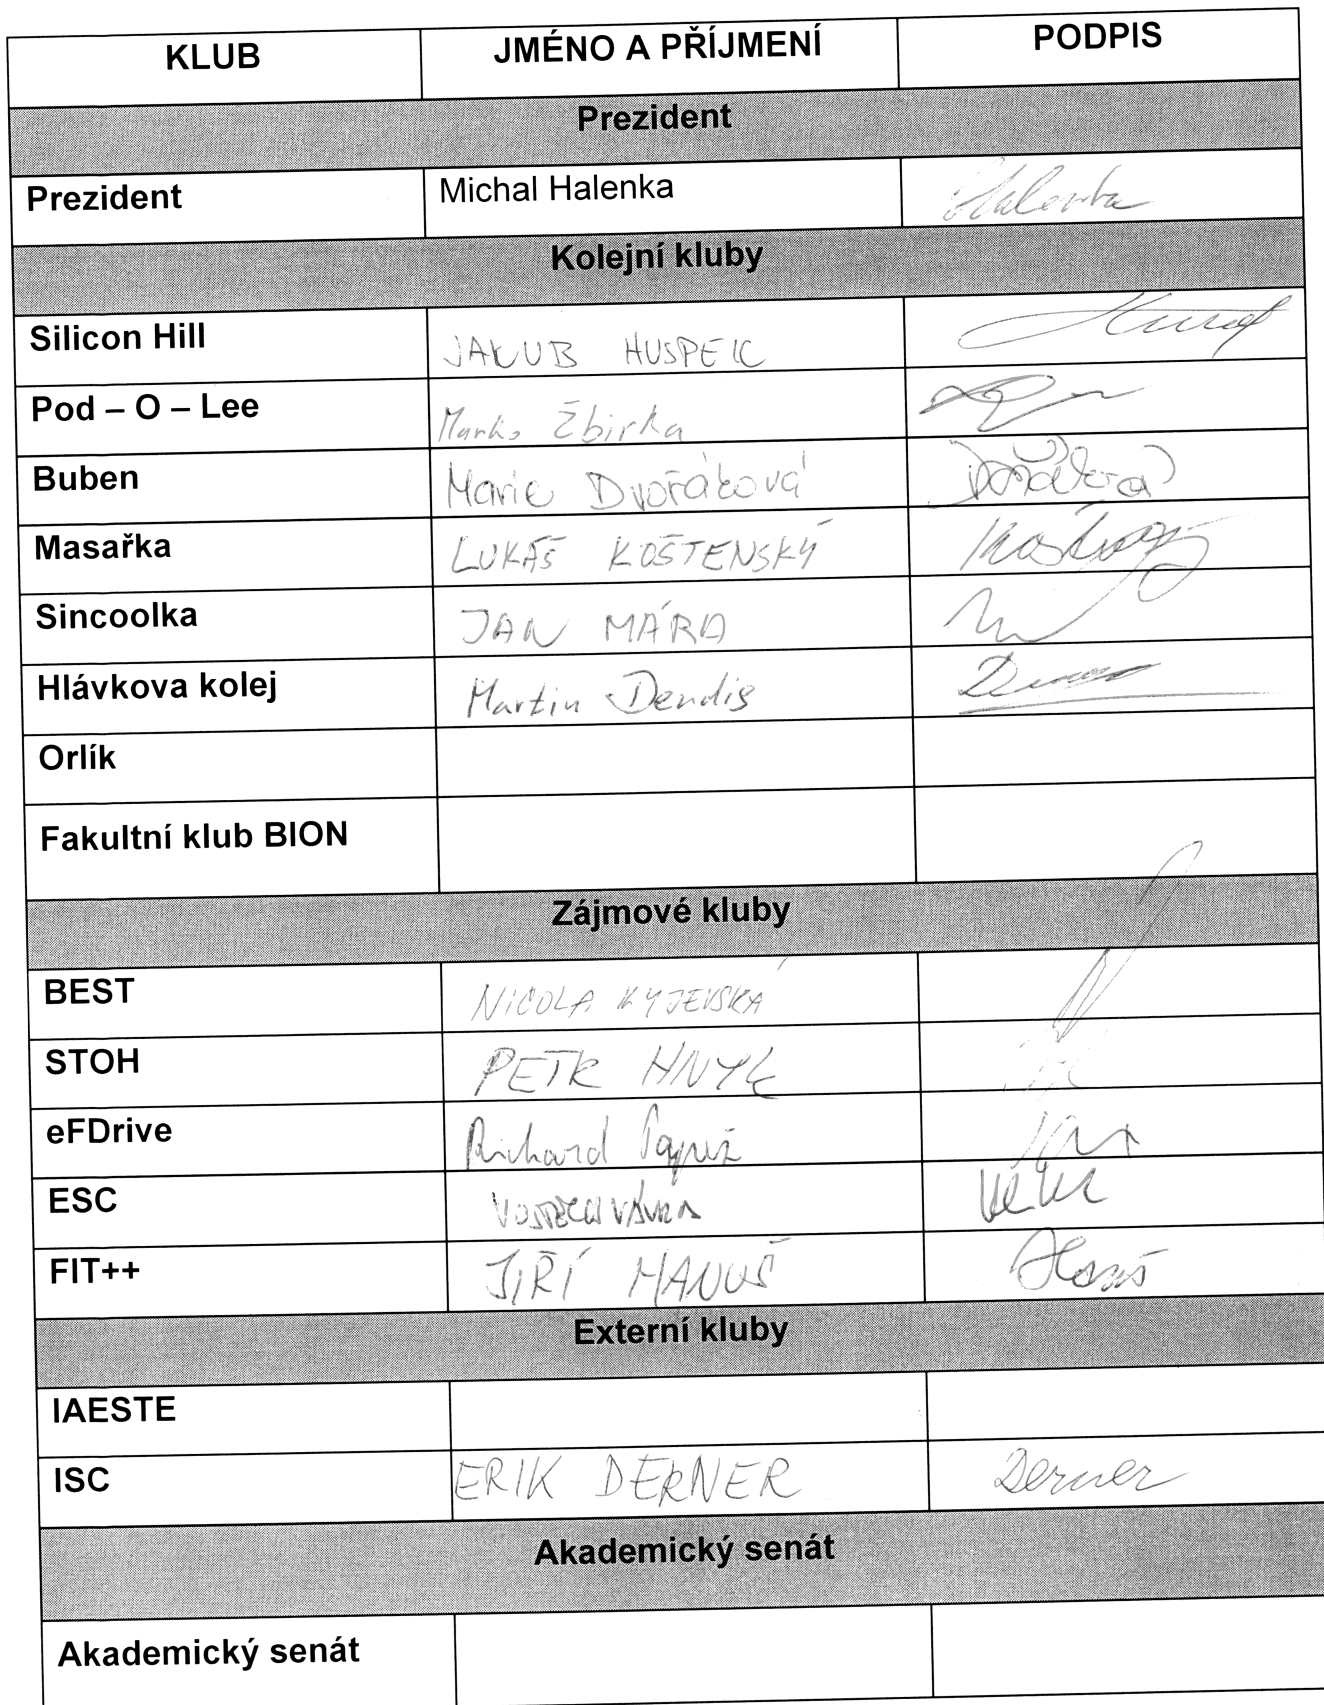 KLUB JMÉNO A PŘÍJMENÍ PODPIS
Prezident
Prezident Michal Halenka Halenka
Kolejní kluby
Silicon Hill JAKUB HUSPEK
Pod – O – Lee Marko Žbirka
Buben Marie Dvořáková Dvořáková
Masařka LUKÁŠ KOŠTENSKÝ
Sincoolka JAN MÁRA
Hlávkova kolej Martin Dendis
Orlík
Fakultní klub BION
Zájmové kluby
BEST NICOLA KYJEVSKÁ
STOH PETR HNYK
eFDrive Richard
ESC VOJTĚCH VÁVRA
FIT++ JIŘÍ HANUŠ Hanuš
Externí kluby
IAESTE
ISC ERIK DERNER Derner
Akademický senát
Akademický senát